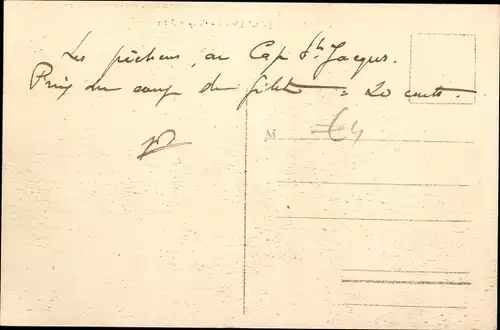 Les pêcheurs, au Cap St. Jacques.
Prix du coup de filet = 20 cents.
€4